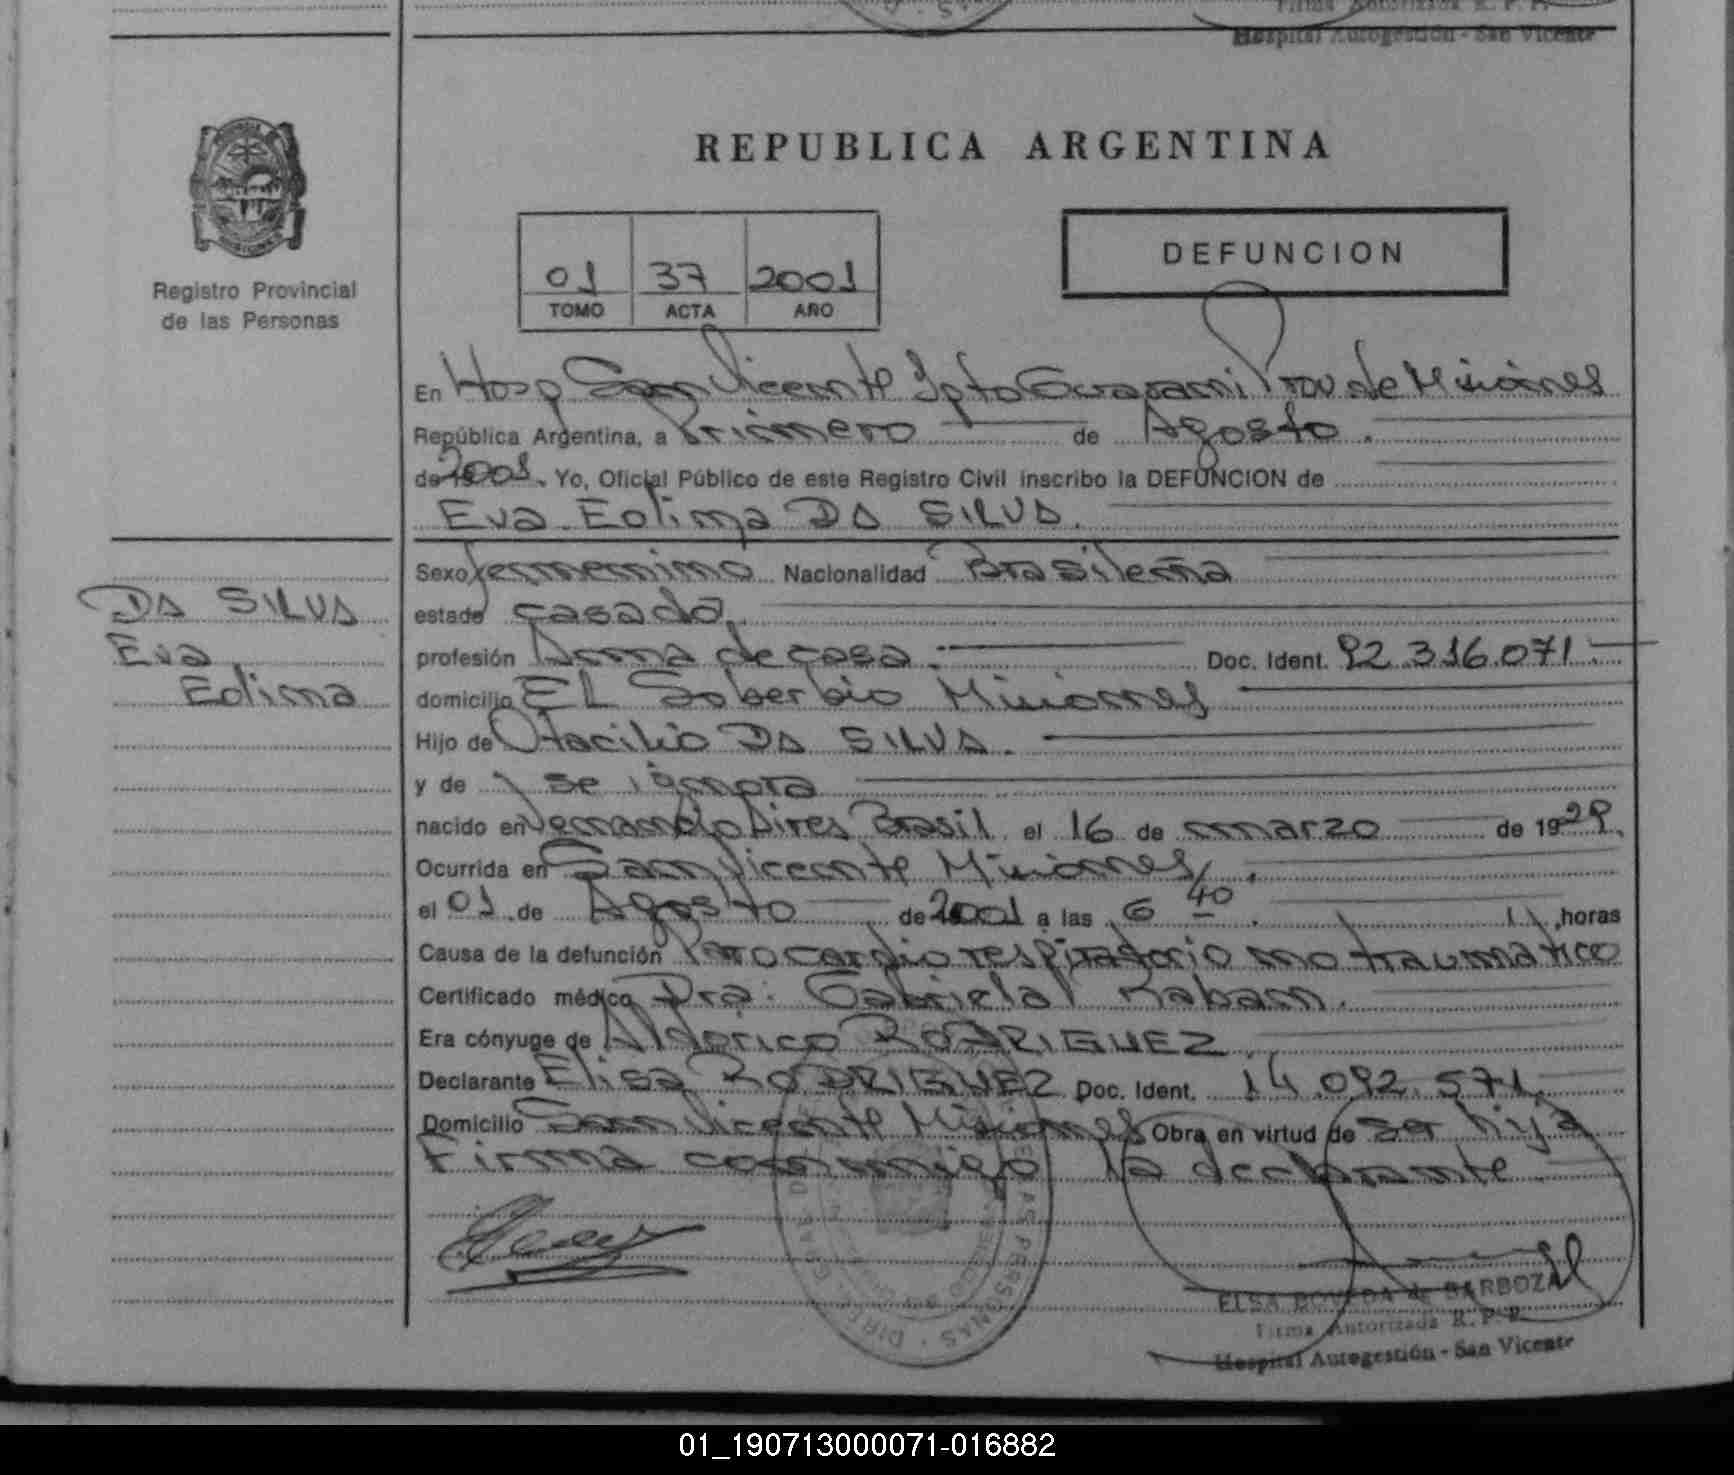 Firma Autorizada R. P. P.
Hospital Autogestión - San Vicente
REPUBLICA ARGENTINA
01 37 2001
TOMO ACTA AÑO
DEFUNCION
Registro Provincial
de las Personas
En Hosp San Vicente Dpto Guarani Prov de Misiones
República Argentina, a Primero de Agosto.
de 2001. Yo, Oficial Público de este Registro Civil inscribo la DEFUNCION de
Eva Eolima DA SILVA.
DA SILVA
Eva
Eolima
Sexo femenino Nacionalidad Brasileña
estado casada
profesión Ama de casa. Doc. Ident. 92.316.071
domicilio EL Soberbio Misiones
Hijo de Otacilio DA SILVA.
y de se ignora
nacido en Aires Brasil el 16 de marzo de 1929.
Ocurrida en San Vicente Misiones.
el 01 de Agosto de 2001 a las 6 40 horas
Causa de la defunción Paro cardio respiratorio no traumático
Certificado médico Dra. Gabriela Kaban.
Era cónyuge de Aldorico RODRIGUEZ.
Declarante Elisa RODRIGUEZ Doc. Ident. 14.092.571.
Domicilio San Vicente Misiones Obra en virtud de ser hija
Firma conmigo la declarante.
ELSA BOVEDA de BARBOZA
Firma Autorizada R. P. P.
Hospital Autogestión - San Vicente
01_190713000071-016882